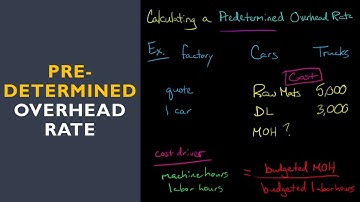 PRE-
DETERMINED
OVERHEAD
RATE
Calculating a Predetermined Overhead Rate
Ex. factory Cars Trucks
Cost
quote Raw Mats 5,000
1 car DL 3,000
MOH ?
cost driver
machine hours = budgeted MOH
labor hours budgeted labor hours